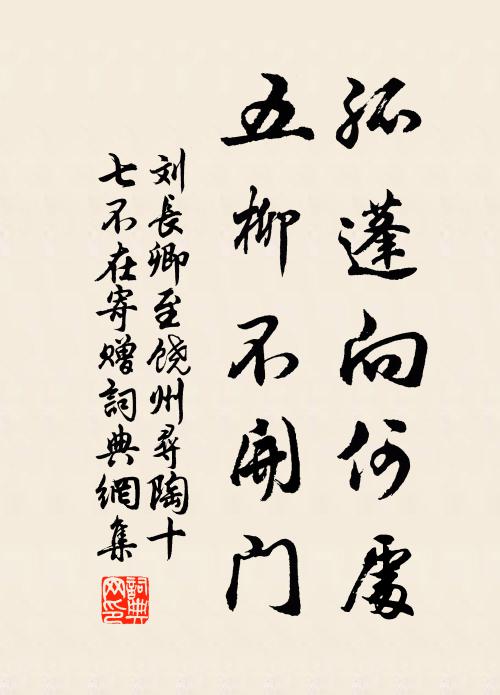 孤蓬向何處
五柳不開門
刘長卿至饶州尋陶十
七不在寄赠詞典網集
詞典
网印